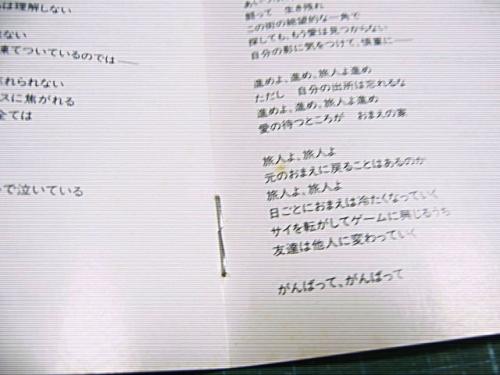 は理解しない
ない
凍てついているのでは──
忘れられない
スに焦がれる
全ては
で泣いている
闘って 生き残れ
この街の絶望的な一角で
探しても、もう愛は見つからない
自分の影に気をつけて、慎重に──
進めよ、進め、旅人よ進め
ただし 自分の出所は忘れるな
進めよ、進め、旅人よ進め
愛の待つところが おまえの家
旅人よ、旅人よ
元のおまえに戻ることはあるのか
旅人よ、旅人よ
日ごとにおまえは冷たくなっていく
サイを転がしてゲームに興じるうち
友達は他人に変わっていく
がんばって、がんばって